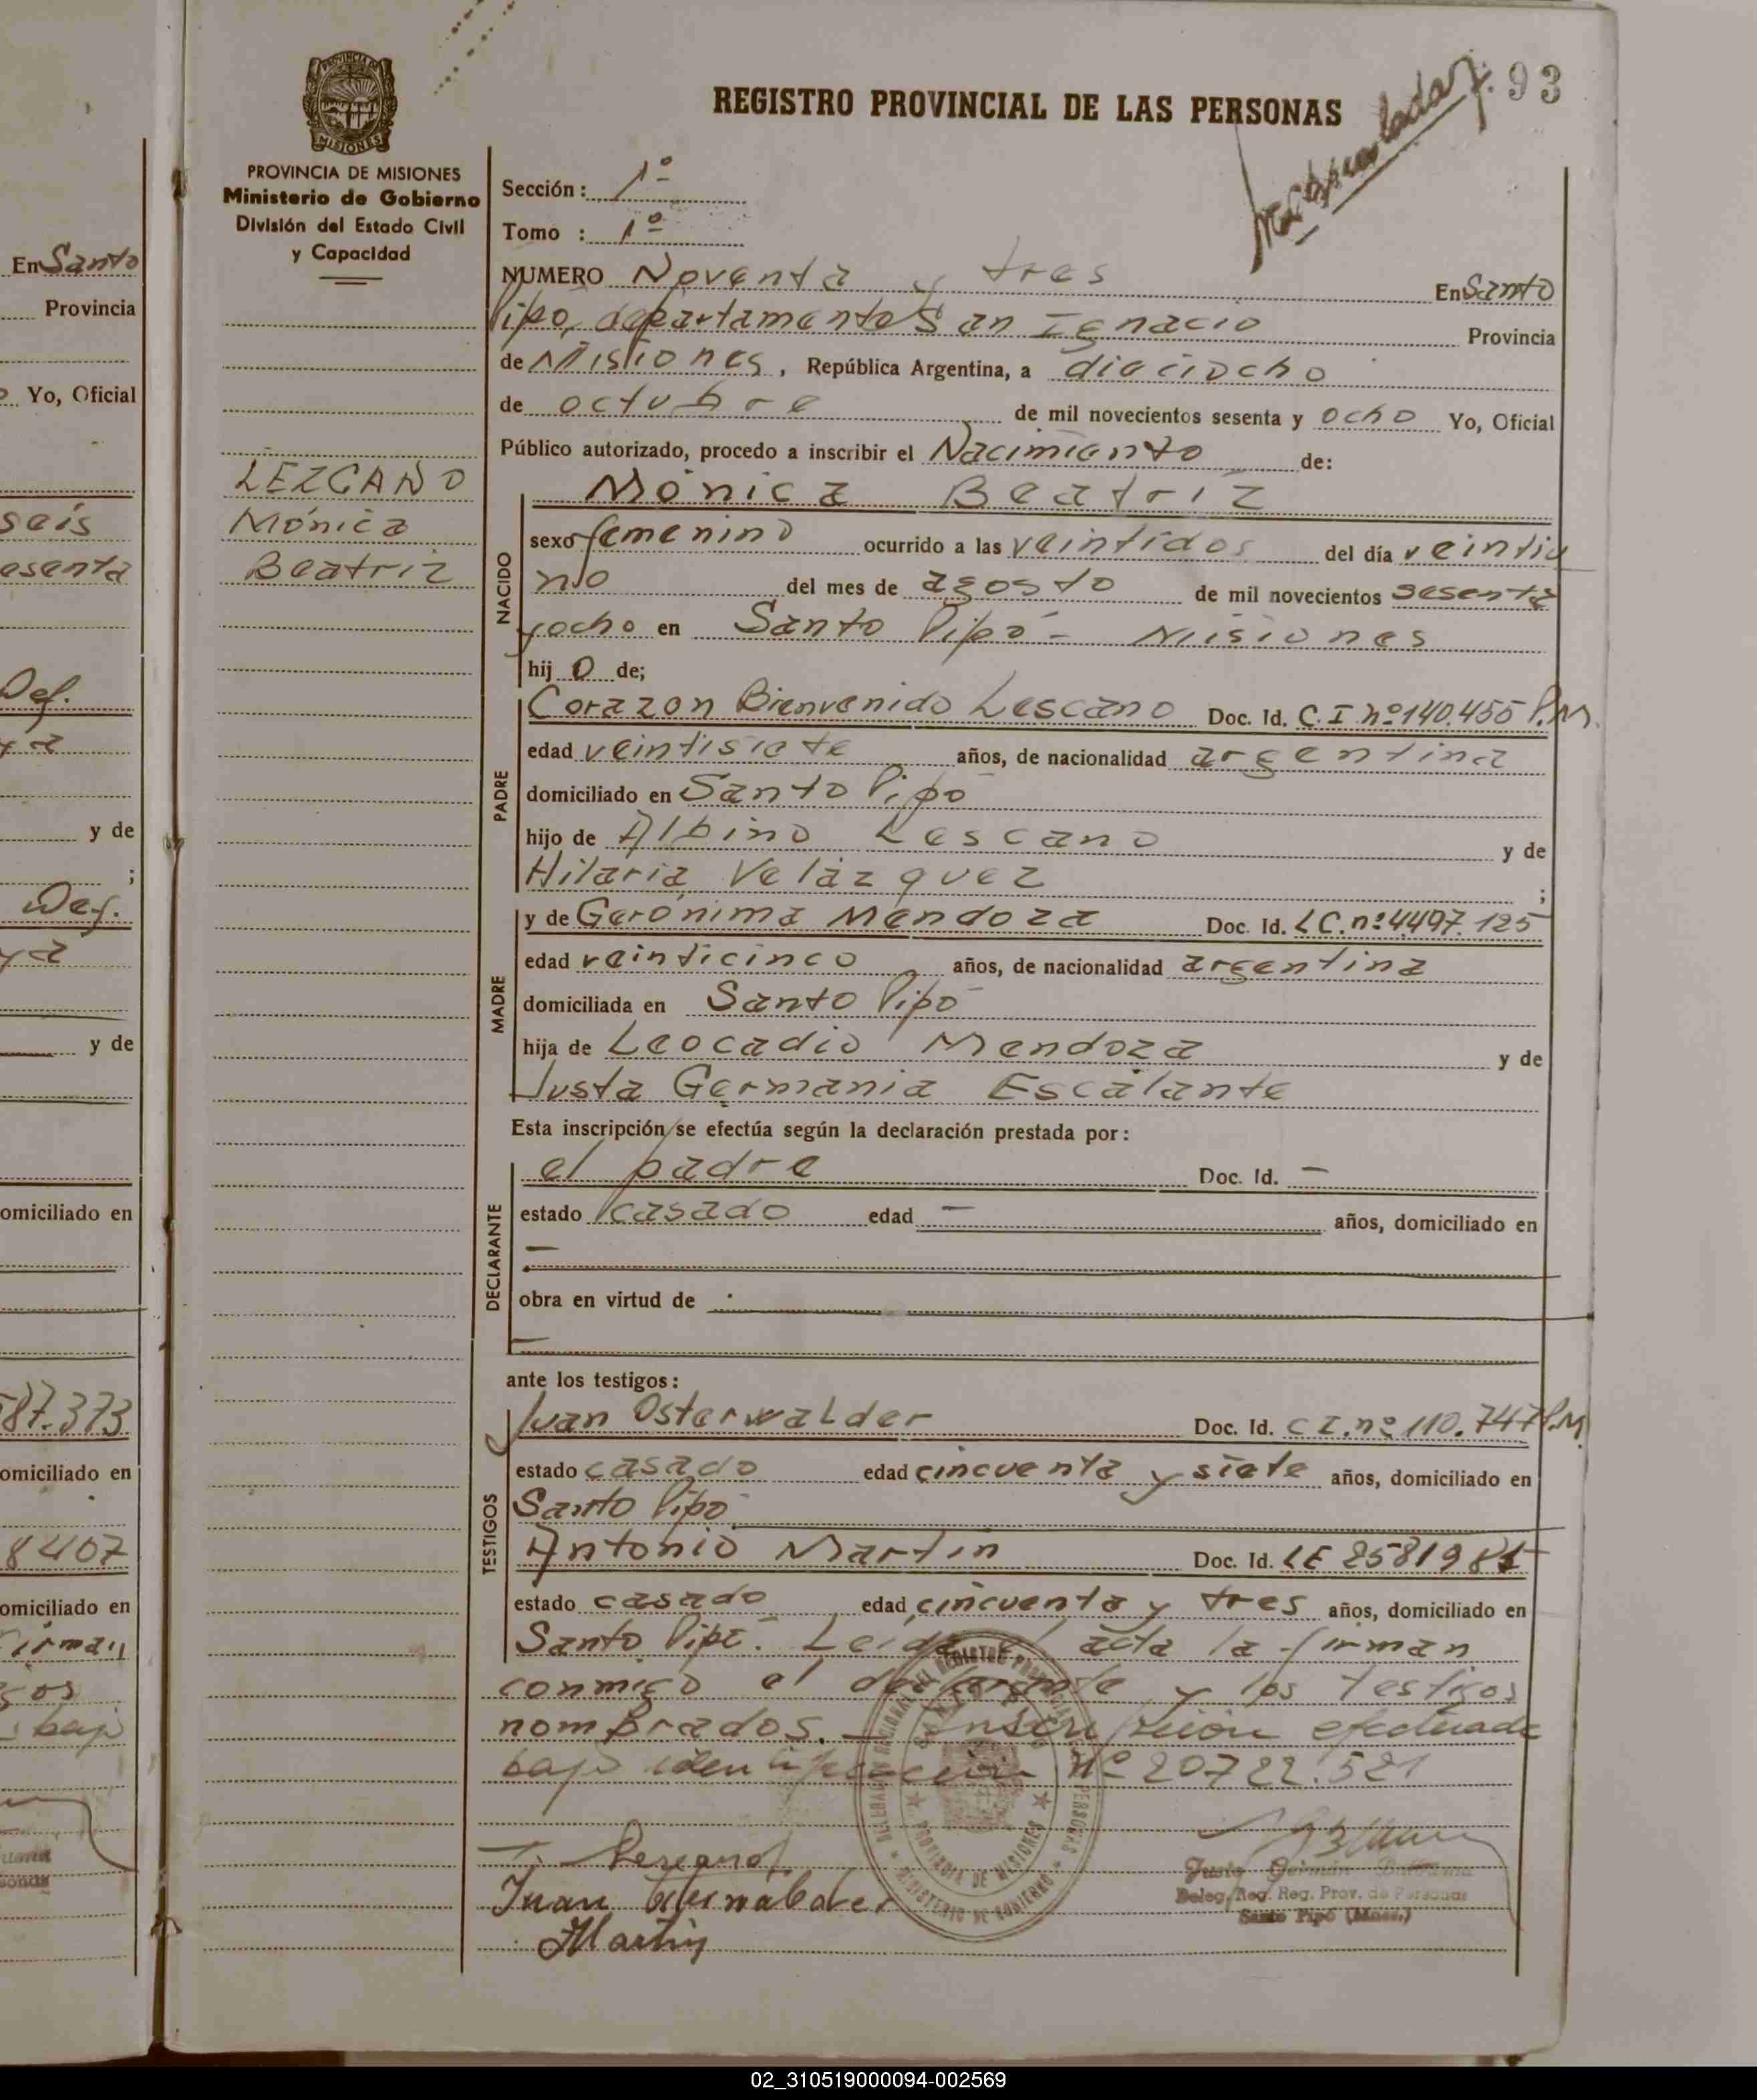 REGISTRO PROVINCIAL DE LAS PERSONAS
93
PROVINCIA DE MISIONES
Ministerio de Gobierno
División del Estado Civil
y Capacidad
LEZCANO
Mónica
Beatriz
Sección: 1º
Tomo : 1º
NUMERO Noventa y tres En Santo
Pipó, departamento San Ignacio Provincia
de Misiones, República Argentina, a dieciocho
de octubre de mil novecientos sesenta y ocho Yo, Oficial
Público autorizado, procedo a inscribir el Nacimiento de:
Mónica Beatriz
NACIDO
sexo femenino ocurrido a las veintidos del día veintiu
no del mes de agosto de mil novecientos sesenta
y ocho en Santo Pipó - Misiones
hij o de;
PADRE
Corazon Bienvenido Lescano Doc. Id. C.I nº 140.455 P.M.
edad veintisiete años, de nacionalidad argentina
domiciliado en Santo Pipó
hijo de Albino Lescano y de
Hilaria Velázquez ;
MADRE
y de Gerónima Mendoza Doc. Id. LC. nº 4.497.125
edad veinticinco años, de nacionalidad argentina
domiciliada en Santo Pipó
hija de Leocadio Mendoza y de
Justa Germania Escalante
Esta inscripción se efectúa según la declaración prestada por:
DECLARANTE
el padre Doc. Id. —
estado casado edad — años, domiciliado en
—
obra en virtud de
—
ante los testigos:
TESTIGOS
Juan Osterwalder Doc. Id. C I. nº 110.747 P.M
estado casado edad cincuenta y siete años, domiciliado en
Santo Pipó
Antonio Martin Doc. Id. LE
estado casado edad cincuenta y tres años, domiciliado en
Santo Pipó. Leida el acta la firman
conmigo el declarante y los testigos
nombrados. — Inscripción efectuada
bajo identificación Nº 20722.521
Juan Osterwalder
Martin
Deleg. Reg. Reg. Prov. de Personas
Santo Pipó (Mnes.)
PROVINCIA DE MISIONES
MINISTERIO DE GOBIERNO
En Santo
Provincia
Yo, Oficial
seis
esenta
Def.
y de
;
Def.
y de
omiciliado en
87.373
omiciliado en
8407
omiciliado en
firman
bajo
02_310519000094-002569